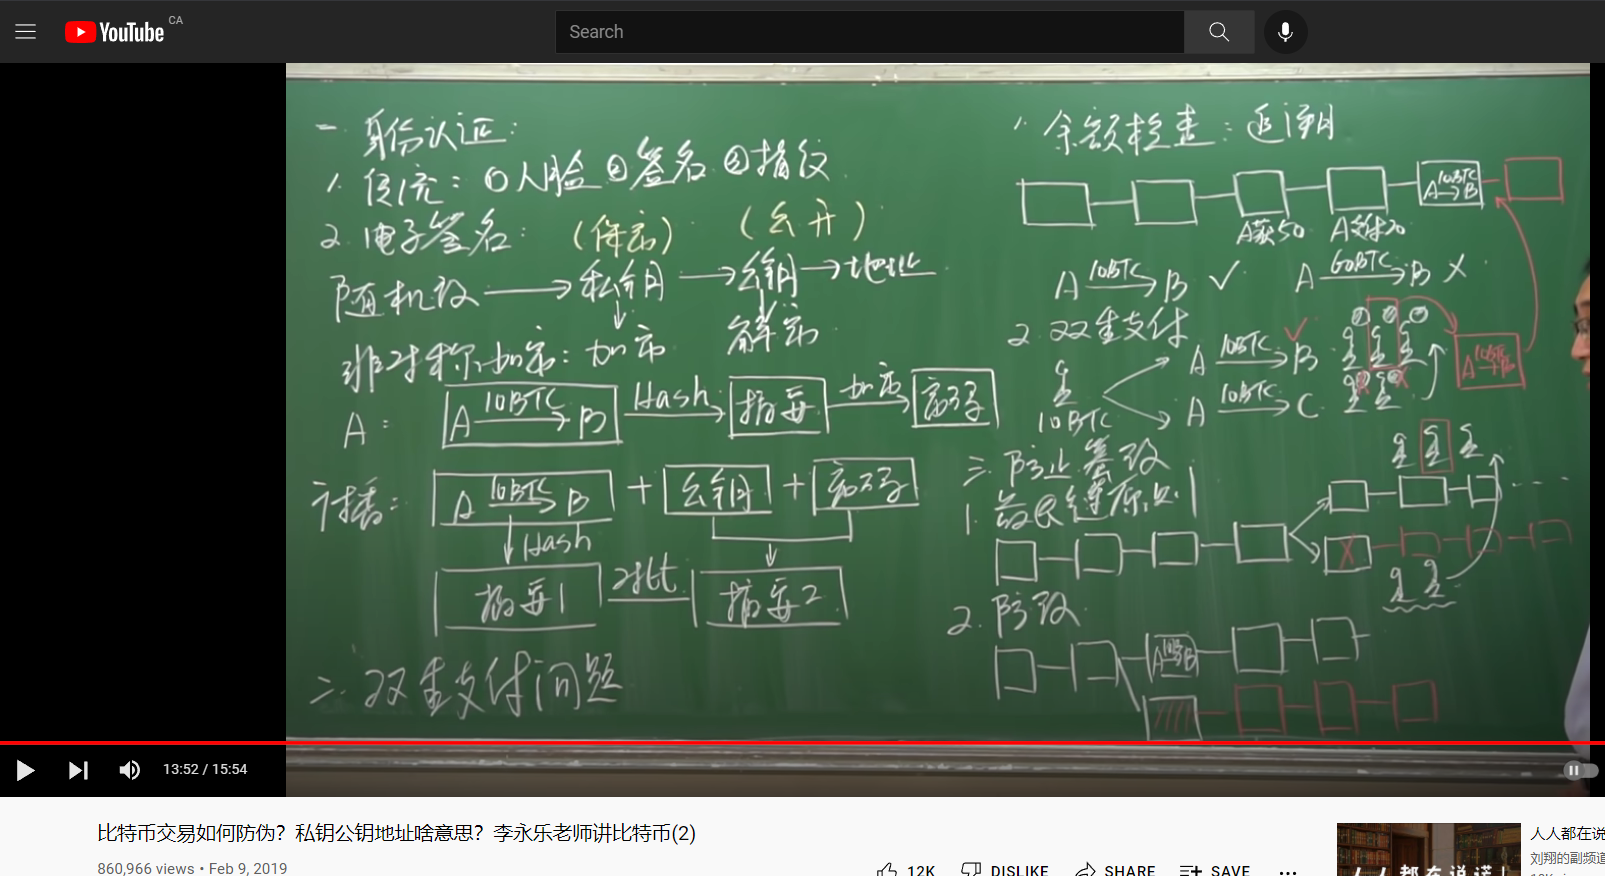 YouTube CA
Search
一、身份认证:
1. 传统: ①人脸 ②签名 ③指纹
2. 电子签名: (保密) (公开)
随机数 → 私钥 → 公钥 → 地址
↓ ↓
非对称加密: 加密 解密
A: A 10BTC→ B Hash→ 摘要 加密→ 密码
广播: A 10BTC→ B + 公钥 + 密码
↓Hash ↓
摘要1 对比 摘要2
二、双重支付问题
1. 余额检查: 追溯
A 10BTC→ B
A获50 A支付20
A 10BTC→ B ✓ A 60BTC→ B ×
2. 双重支付
A 10BTC→ B ✓
10BTC
A 10BTC→ C
A 10BTC→ B
三、防止篡改
1. 最长链原则
×
2. 防改
A 10BTC→ B
13:52 / 15:54
比特币交易如何防伪？私钥公钥地址啥意思？李永乐老师讲比特币(2)
860,966 views • Feb 9, 2019
12K DISLIKE SHARE SAVE ...
人人都在说谎!
人人都在说
刘翔的副频道